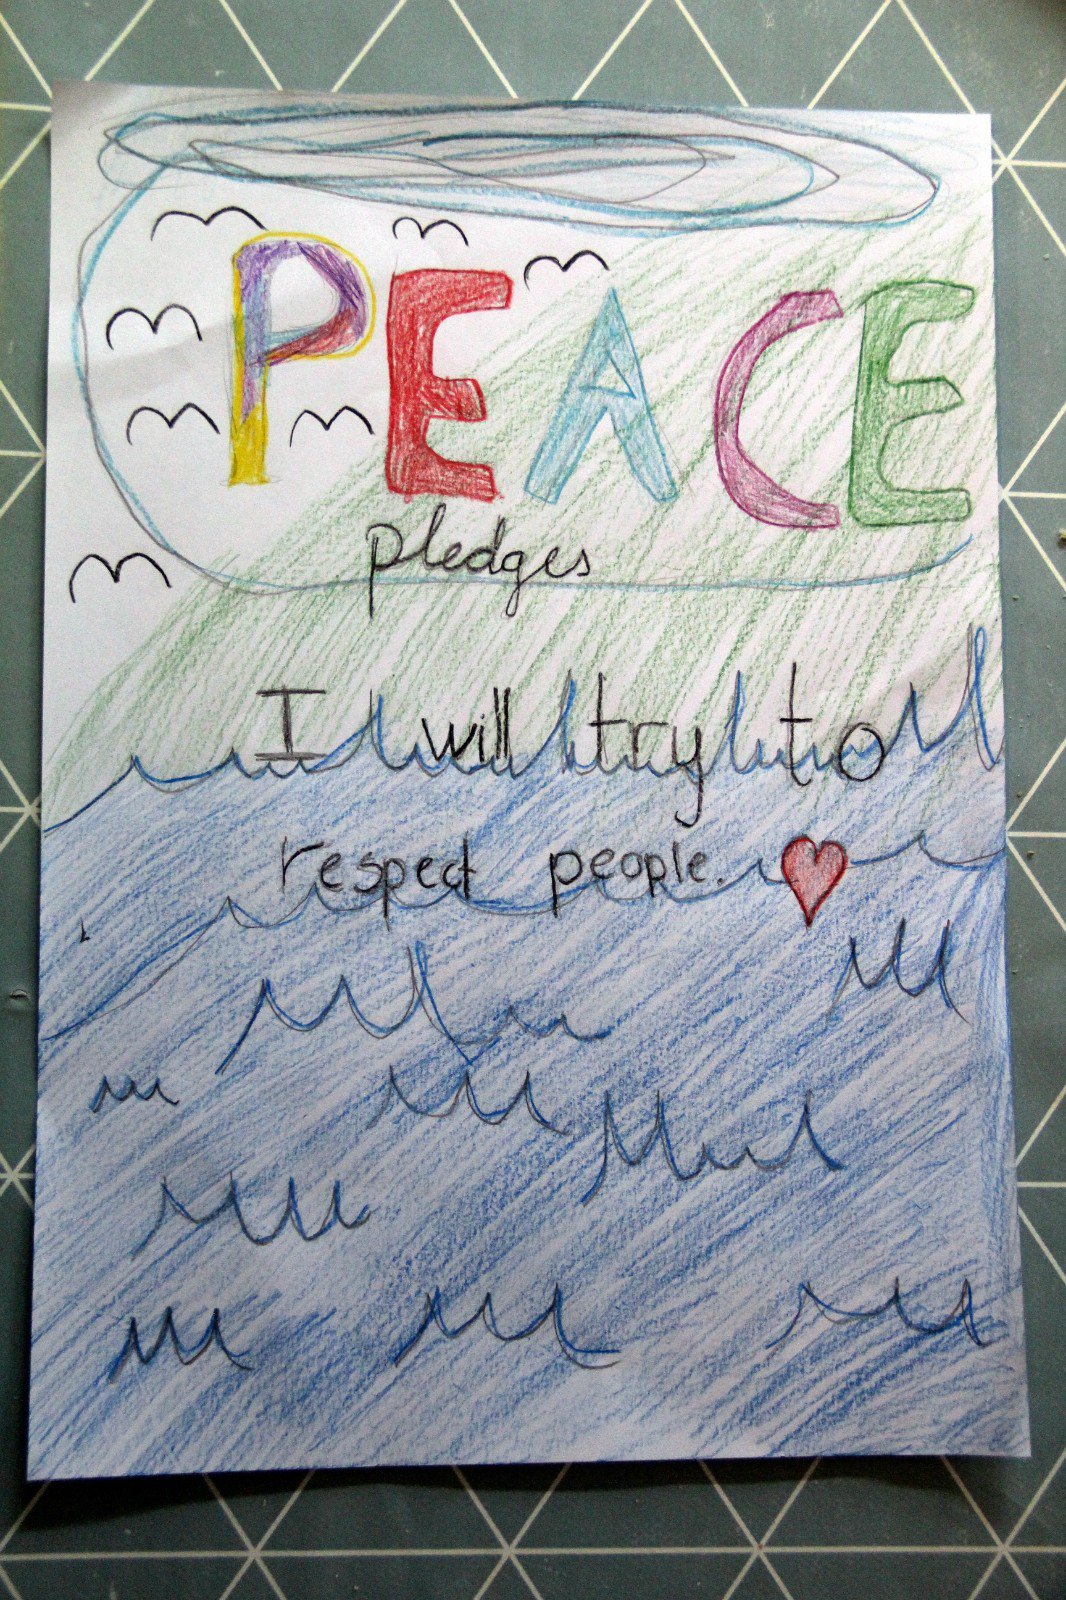 PEACE
pledges
I will try to
respect people.